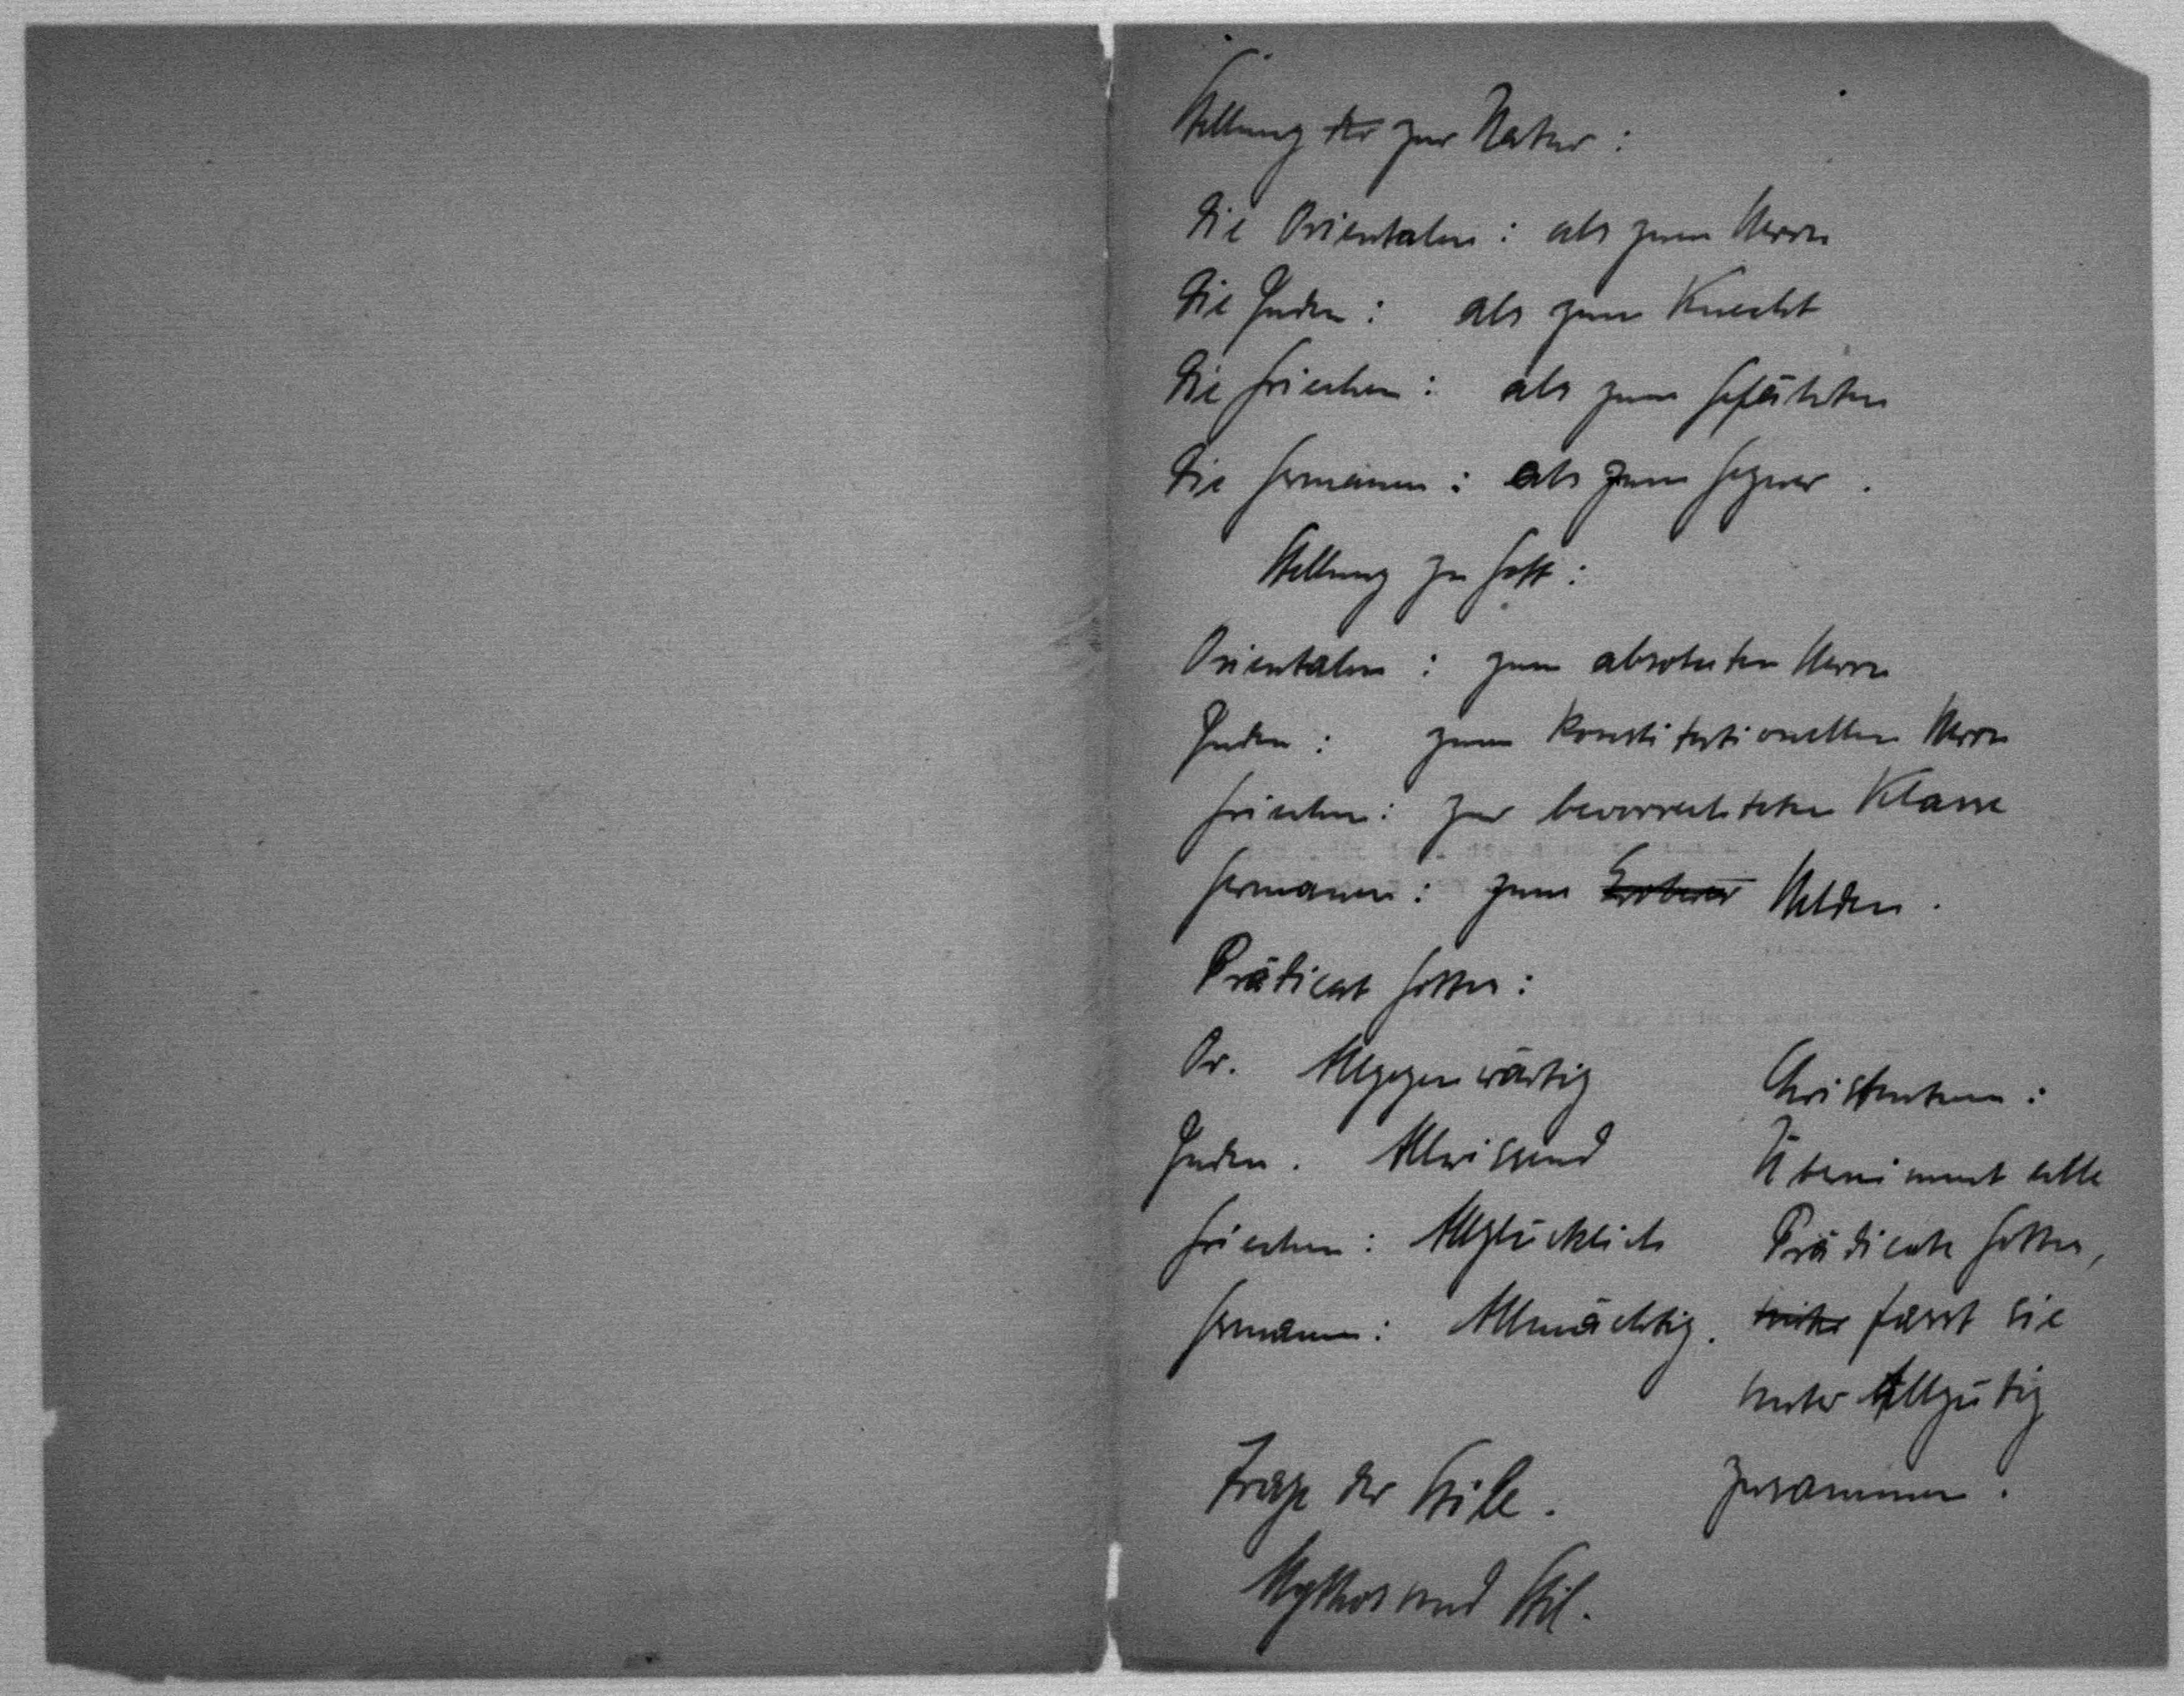 Stellung der zur Natur:
Die Orientalen: als zum Herrn
Die Juden: als zum Knecht
Die Griechen: als zum Gefährten
Die Germanen: als zum Gegner.
Stellung zu Gott:
Orientalen: zum absoluten Herrn
Juden: zum konstitutionellen Herrn
Griechen: zur bevorrechteten Klasse
Germanen: zum Eroberer Helden.
Prädicat Gottes:
Or. Allgegenwärtig
Juden. Allwissend
Griechen: Allglücklich
Germanen: Allmächtig.
Christentum:
Übernimmt alle
Prädicate Gottes,
unter fasst sie
unter Allgütig
zusammen.
Frage der Stile.
Mythos und Stil.